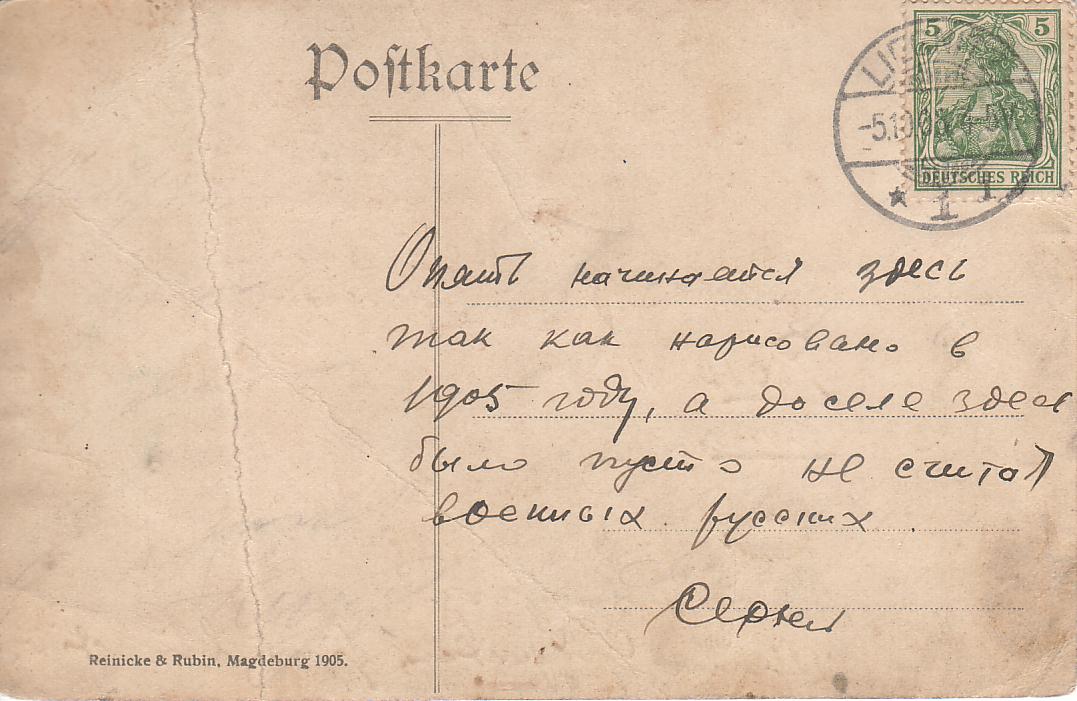 Postkarte
5 5
DEUTSCHES REICH
1
Опять начинается здесь
так как нарисовано в
1905 году, а доселе здесь
было пусто не считая
военных русских.
Reinicke & Rubin, Magdeburg 1905.